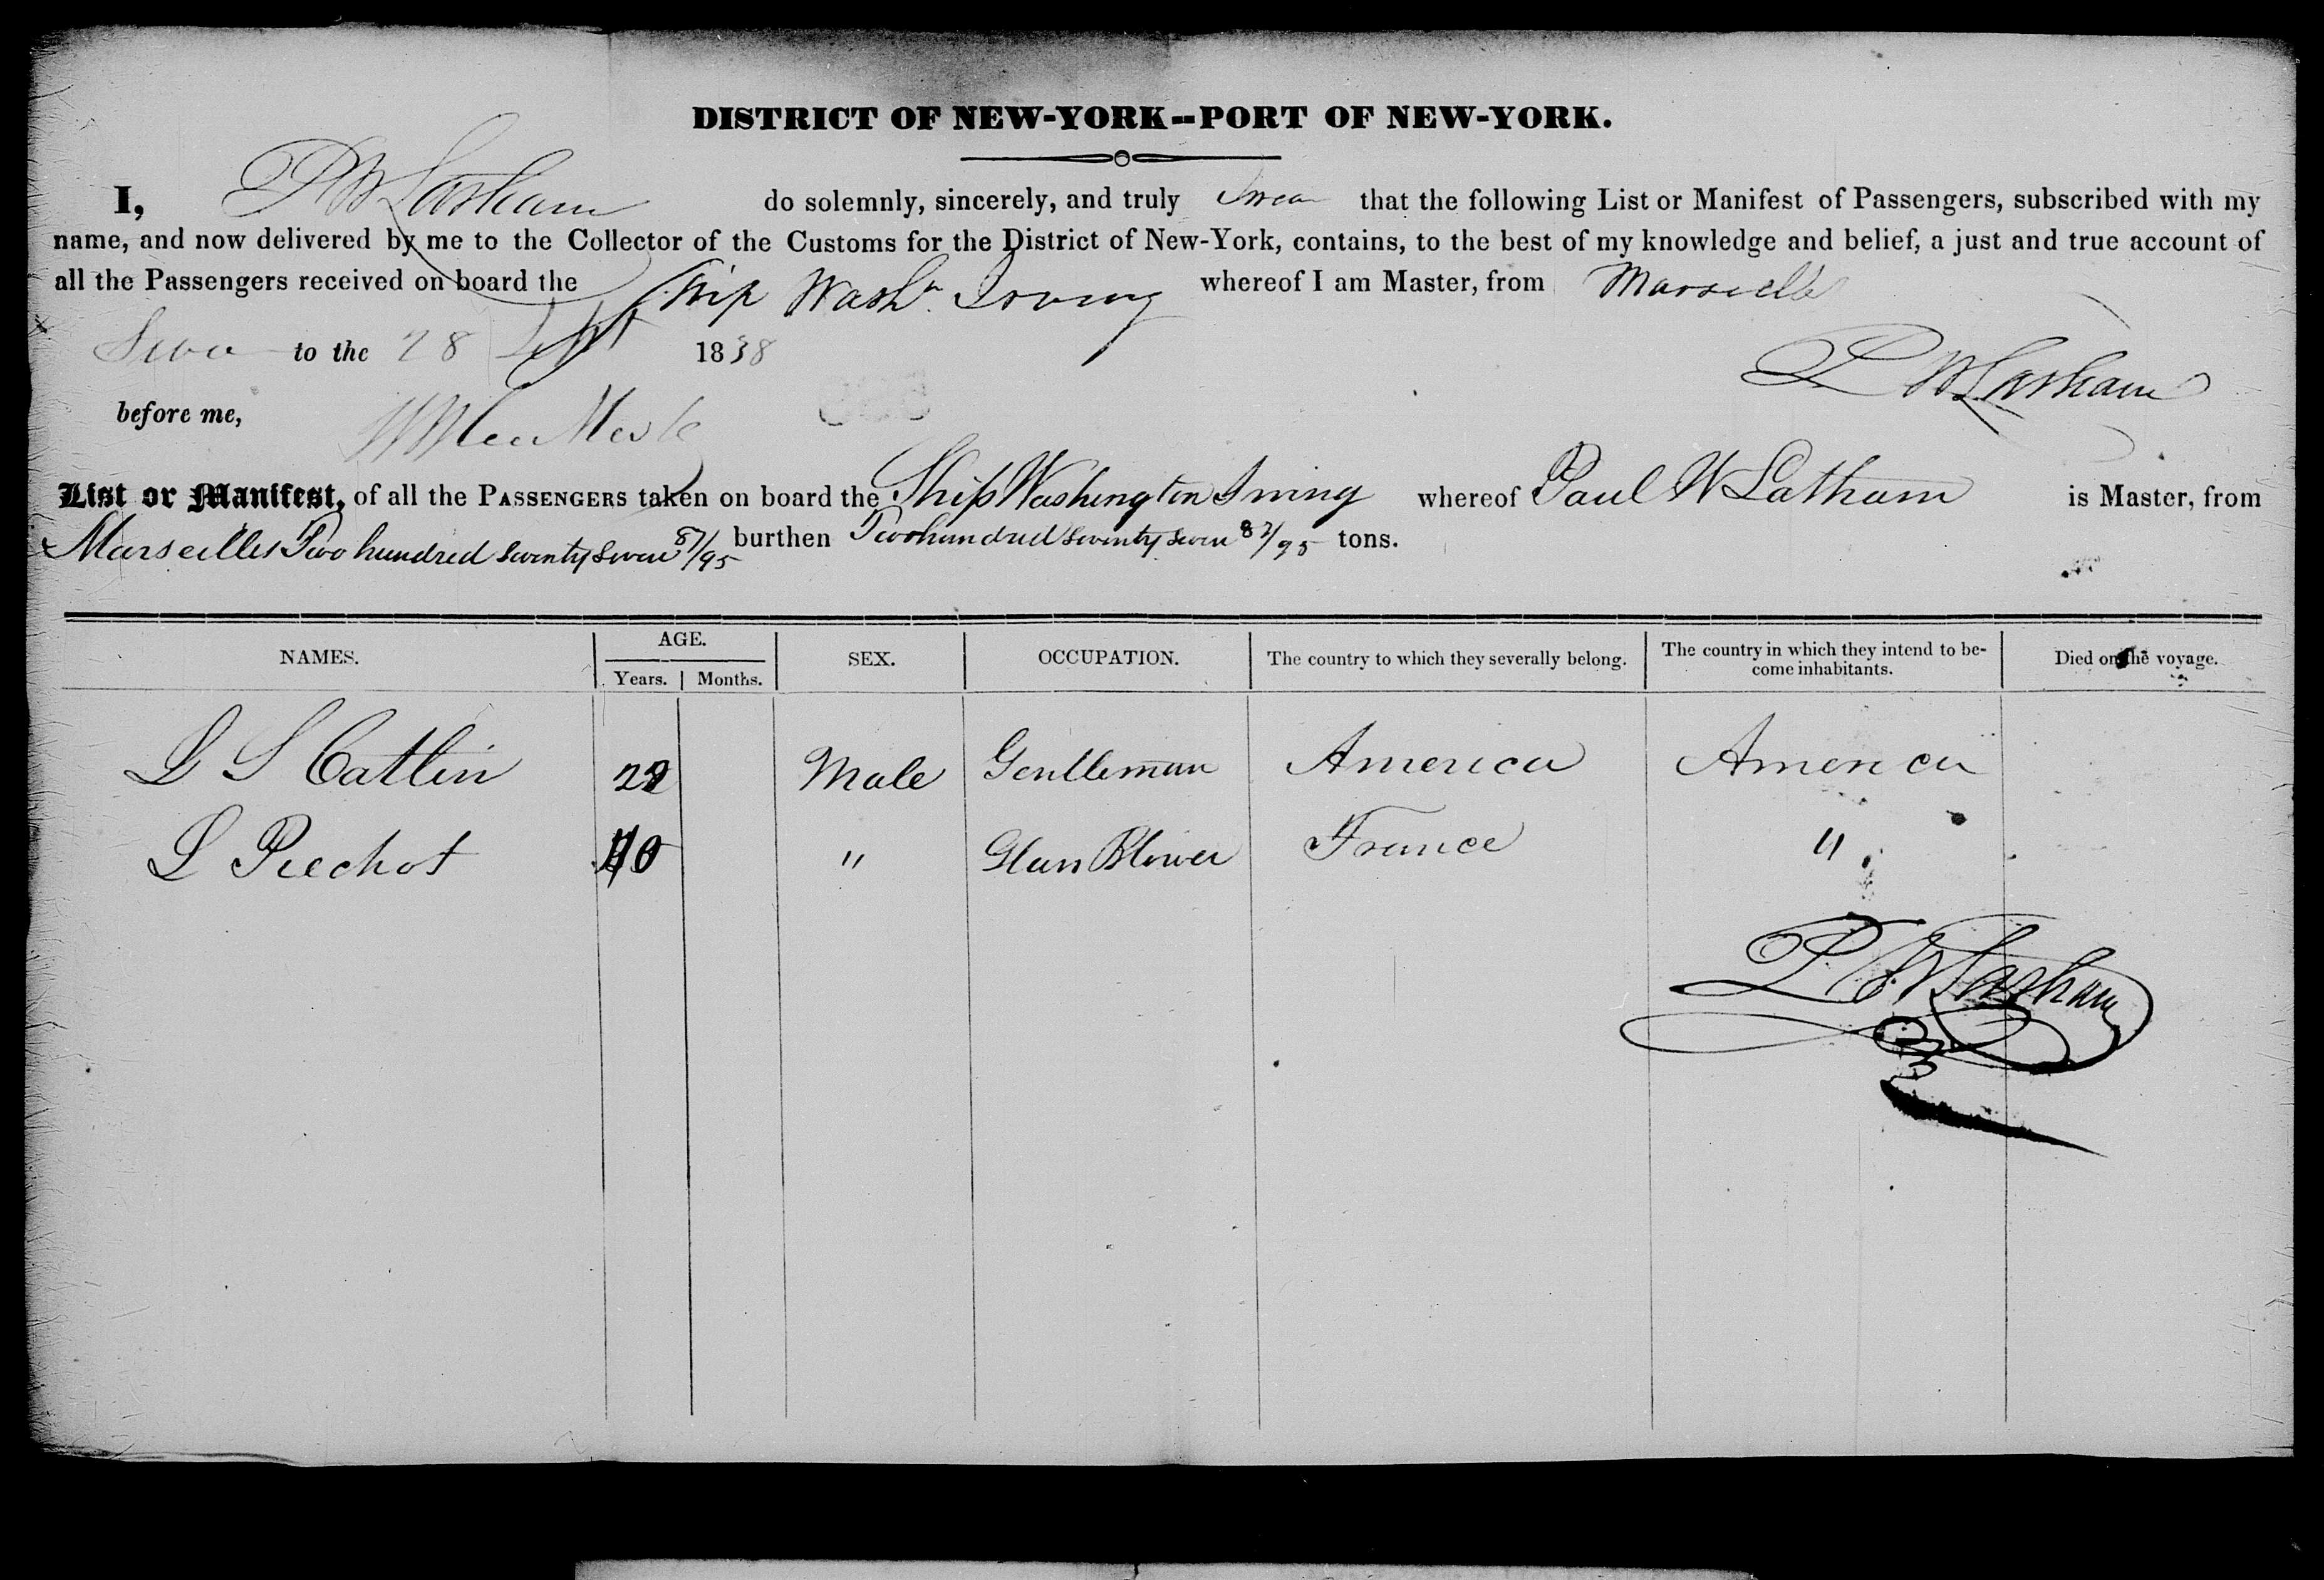 DISTRICT OF NEW-YORK--PORT OF NEW-YORK.
I, P W Latham do solemnly, sincerely, and truly Swear that the following List or Manifest of Passengers, subscribed with my
name, and now delivered by me to the Collector of the Customs for the District of New-York, contains, to the best of my knowledge and belief, a just and true account of
all the Passengers received on board the Ship Washn. Irving whereof I am Master, from Marseilles
to the 28 Sept 1838
P W Latham
before me,
List or Manifest, of all the PASSENGERS taken on board the Ship Washington Irving whereof Paul W Latham is Master, from
Marseilles Two hundred Seventy Seven 87/95 burthen Two hundred Seventy Seven 87/95 tons.
NAMES. AGE. Years. Months. SEX. OCCUPATION. The country to which they severally belong. The country in which they intend to be-
come inhabitants. Died on the voyage.
L S Catlin 22 Male Gentleman America America
L Piechot 40 " Glass Blower France "
P W Latham